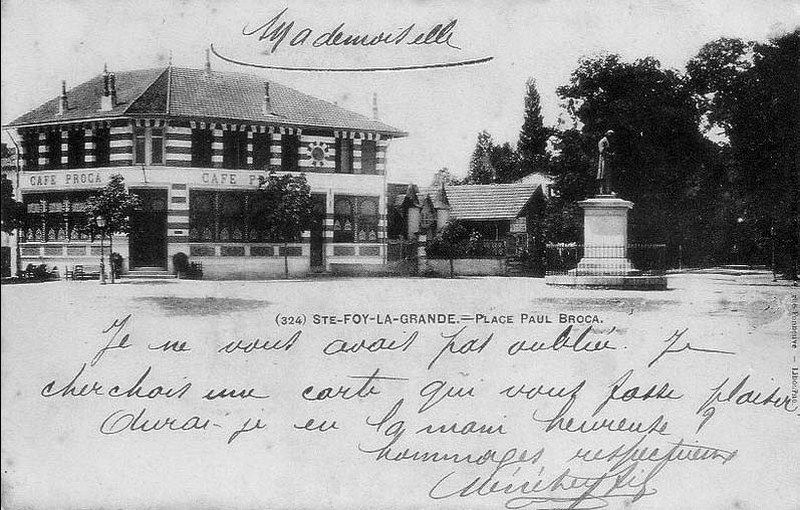 Mademoiselle
CAFE PROCA
CAFE PROCA
(324) STE-FOY-LA-GRANDE.—PLACE PAUL BROCA.
Je ne vous avait pas oubliée. Je
cherchais une carte qui vous fasse plaisir
Aurai-je eu la main heureuse ?
hommages respectueux